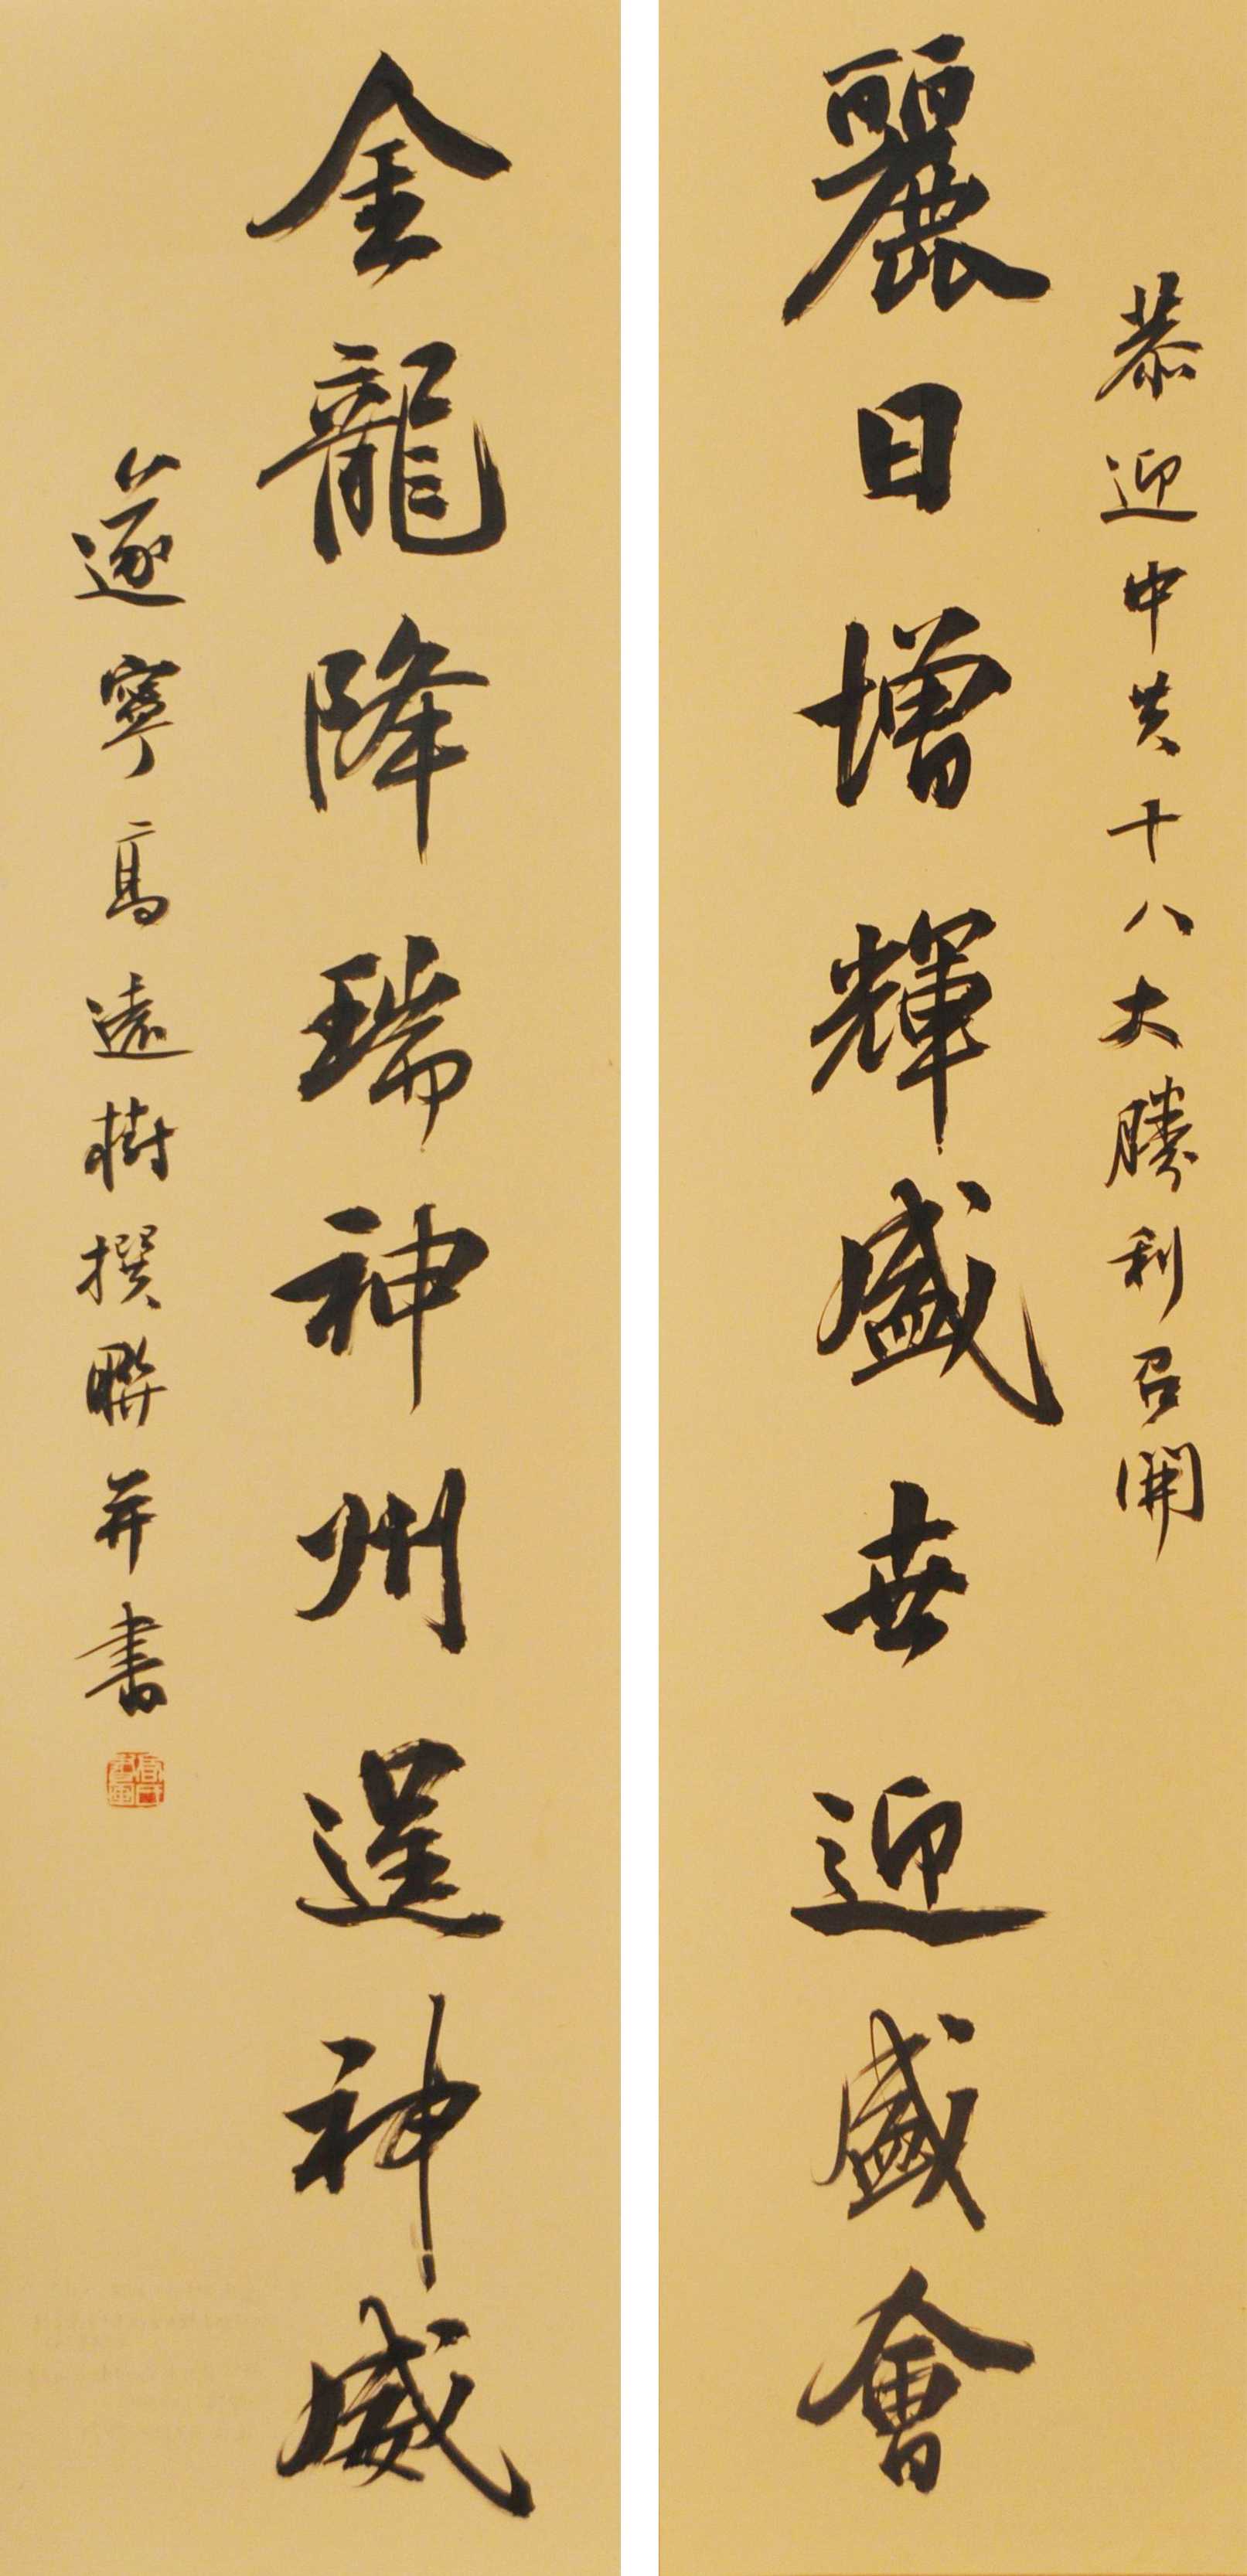 恭迎中共十八大勝利召開
麗日增輝盛世迎盛會
金龍降瑞神州逞神威
遂寧高遠樹撰聯并書